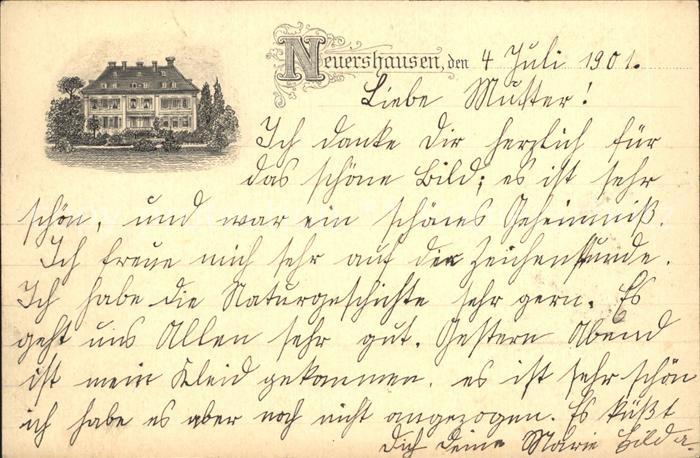 Neuershausen, den 4 Juli 1901.
Liebe Mutter!
Ich danke Dir herzlich für
das schöne Bild; es ist sehr
schön, und war ein schönes Geheimniß.
Ich freue mich sehr auf die Zeichenstunde.
Ich habe die Naturgeschichte sehr gern. Es
geht uns Allen sehr gut. Gestern Abend
ist mein Kleid gekommen, es ist sehr schön
ich habe es aber noch nicht angezogen. Es küßt
Dich Deine Marie